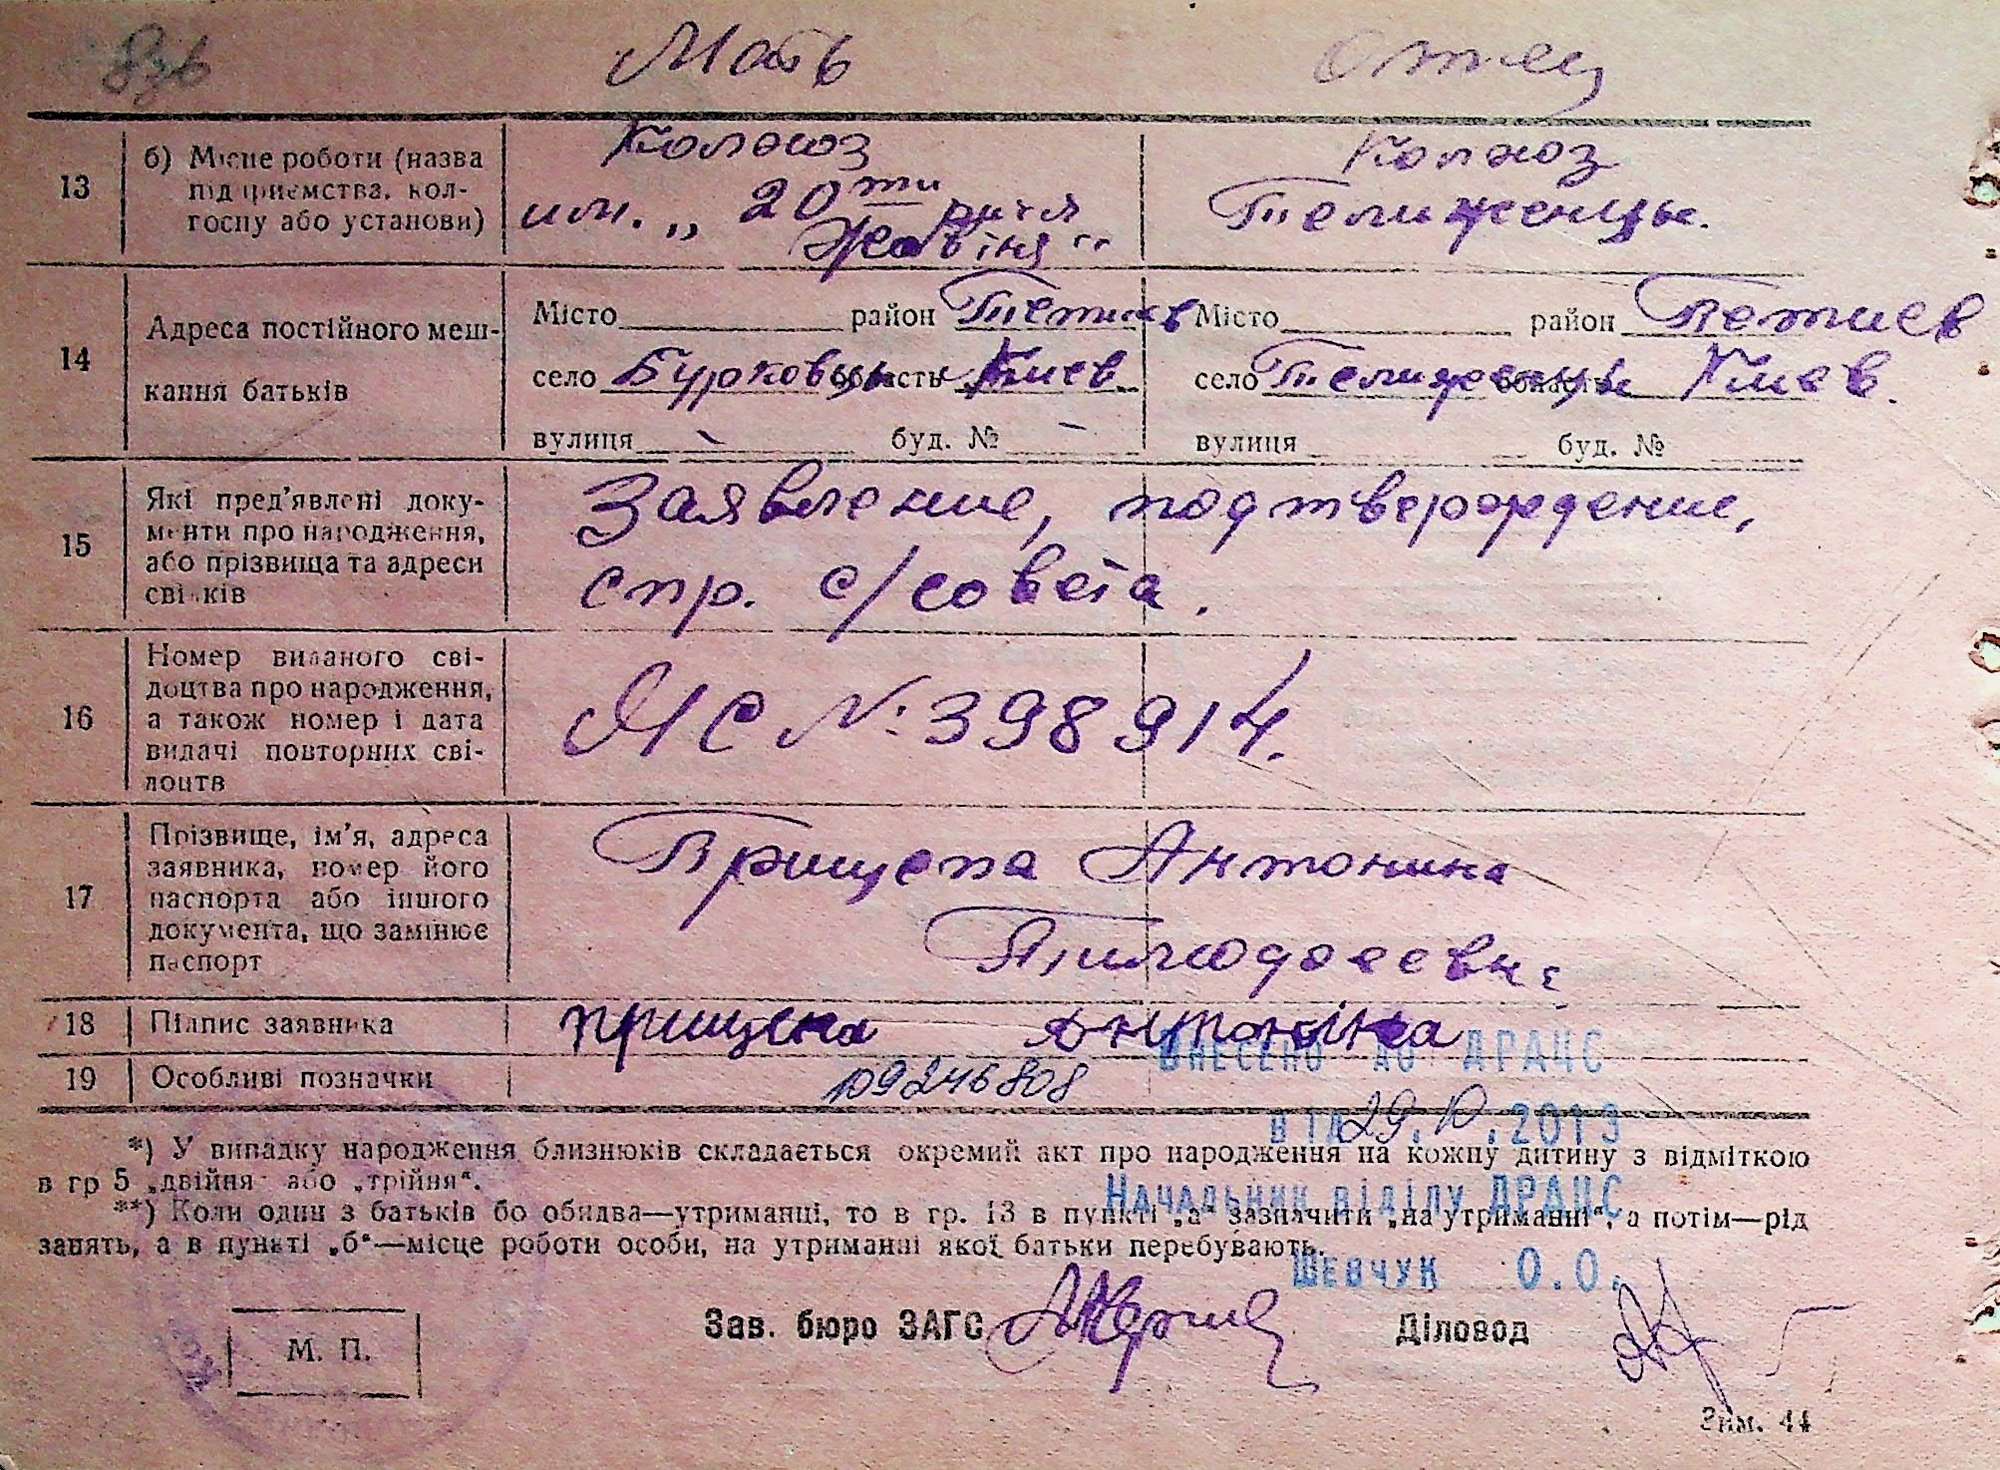 Мать Отец
13 б) Місце роботи (назва підприємства, колгоспу або установи)
Колхоз
им. „ 20ти річчя
Жовтня“
Колхоз
Телиженцы.
14 Адреса постійного мешкання батьків
Місто район Тетиев
село Бурковцы область Киев
вулиця - буд. № -
Місто район Тетиев
село Телиженцы область Киев.
вулиця буд. №
15 Які пред'явлені документи про народження, або прізвища та адреси свідків
Заявление, подтверждение,
спр. с/совета.
16 Номер виданого свідоцтва про народження, а також номер і дата видачі повторних свідоцтв
ЯС №: 398914.
17 Прізвище, ім'я, адреса заявника, номер його паспорта або іншого документа, що замінює паспорт
Прищепа Антонина
18 Підпис заявника
прищепа Антоніна
19 Особливі позначки
109246808
Внесено до ДРАЦС
від 29.10.2013
Начальник відділу ДРАЦС
Шевчук О.О.
*) У випадку народження близнюків складається окремий акт про народження на кожну дитину з відміткою
в гр 5 „двійня“ або „трійня“.
**) Коли один з батьків бо обидва—утриманці, то в гр. 13 в пункті „а“ зазначити „на утриманні“, а потім—рід
занять, а в пункті „б“—місце роботи особи, на утриманні якої батьки перебувають.
М. П.
Зав. бюро ЗАГС
Діловод
Зам. 44